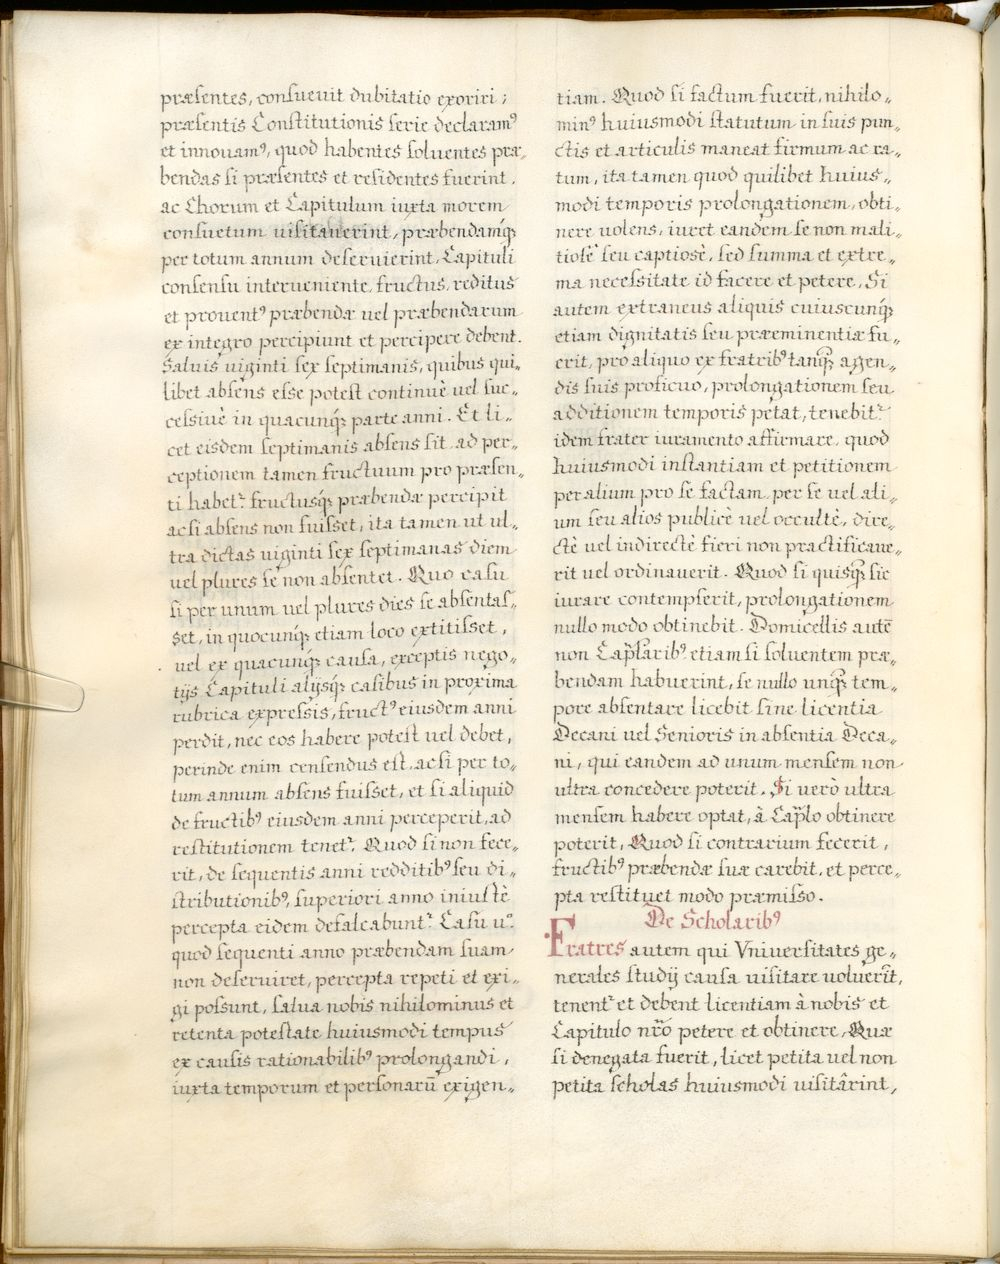 præsentes, consueuit dubitatio exoriri;
præsentis Constitutionis serie declaramꝰ
et innouamꝰ, quod habentes soluentes præ„
bendas si præsentes et residentes fuerint,
ac Chorum et Capitulum iuxta morem
consuetum uisitauerint, præbendamq́ꝫ
per totum annum deseruierint, Capituli
consensu interueniente, fructus, reditus
et prouentꝰ præbendæ uel præbendarum
ex integro percipiunt et percipere debent.
Saluis uiginti sex septimanis, quibus qui„
libet absens esse potest continuè uel suc„
cessiuè in quacunq́ꝫ parte anni. Et li„
cet eisdem septimanis absens sit, ad per„
ceptionem tamen fructuum pro præsen„
ti habet᷑. fructusq́ꝫ præbendæ percipit
ac si absens non fuisset, ita tamen ut ul„
tra dictas uiginti sex septimanas diem
uel plures se non absentet. Quo casu
si per unum uel plures dies se absentas„
set, in quocunq́ꝫ etiam loco extitisset,
uel ex quacunq́ꝫ causa, exceptis nego„
tijs Capituli alijsq́ꝫ casibus in proxima
rubrica expressis, fructꝰ eiusdem anni
perdit, nec eos habere potest uel debet,
perinde enim censendus est, ac si per to„
tum annum absens fuisset, et si aliquid
de fructibꝰ eiusdem anni perceperit, ad
restitutionem tenet᷑. Quod si non fece„
rit, de sequentis anni redditibꝰ seu di„
stributionibꝰ, superiori anno iniustè
percepta eidem defalcabunt᷑. Casu uº.
quod sequenti anno præbendam suam
non deseruiret, percepta repeti et exi„
gi possunt, salua nobis nihilominus et
retenta potestate huiusmodi tempus
ex causis rationabilibꝰ prolongandi,
iuxta temporum et personarū exigen„
tiam. Quod si factum fuerit, nihilo„
minꝰ huiusmodi statutum in suis pun„
ctis et articulis maneat firmum ac ra„
tum, ita tamen quod quilibet huius„
modi temporis prolongationem, obti„
nere uolens, iuret eandem se non mali„
tiosè seu captiosè, sed summa et extre„
ma necessitate id facere et petere, Si
autem extraneus aliquis cuiuscunq́ꝫ
etiam dignitatis seu præeminentiæ fu„
erit, pro aliquo ex fratribꝰ tanq̃ꝫ agen„
dis suis proficuo, prolongationem seu
additionem temporis petat, tenebit᷑
idem frater iuramento affirmare, quod
huiusmodi instantiam et petitionem
per alium pro se factam, per se uel ali„
um seu alios publicè uel occultè, dire„
ctè uel indirectè fieri non practificaue„
rit uel ordinauerit. Quod si quisq̃ꝫ sic
iurare contempserit, prolongationem
nullo modo obtinebit. Domicellis autē
non Cap̃laribꝰ etiam si soluentem præ„
bendam habuerint, se nullo unq̃ꝫ tem„
pore absentare licebit sine licentia
Decani uel Senioris in absentia Deca„
ni, qui eandem ad unum mensem non
ultra concedere poterit. Si uerò ultra
mensem habere optat, à Cap̃lo obtinere
poterit, Quod si contrarium fecerit,
fructibꝰ præbendæ suæ carebit, et perce„
pta restituet modo præmisso.
De Scholaribꝰ
Fratres autem qui Vniuersitates ge„
nerales studij causa uisitare uoluerīt,
tenent᷑ et debent licentiam à nobis et
Capitulo nr̃o petere et obtinere, Quæ
si denegata fuerit, licet petita uel non
petita scholas huiusmodi uisitârint,